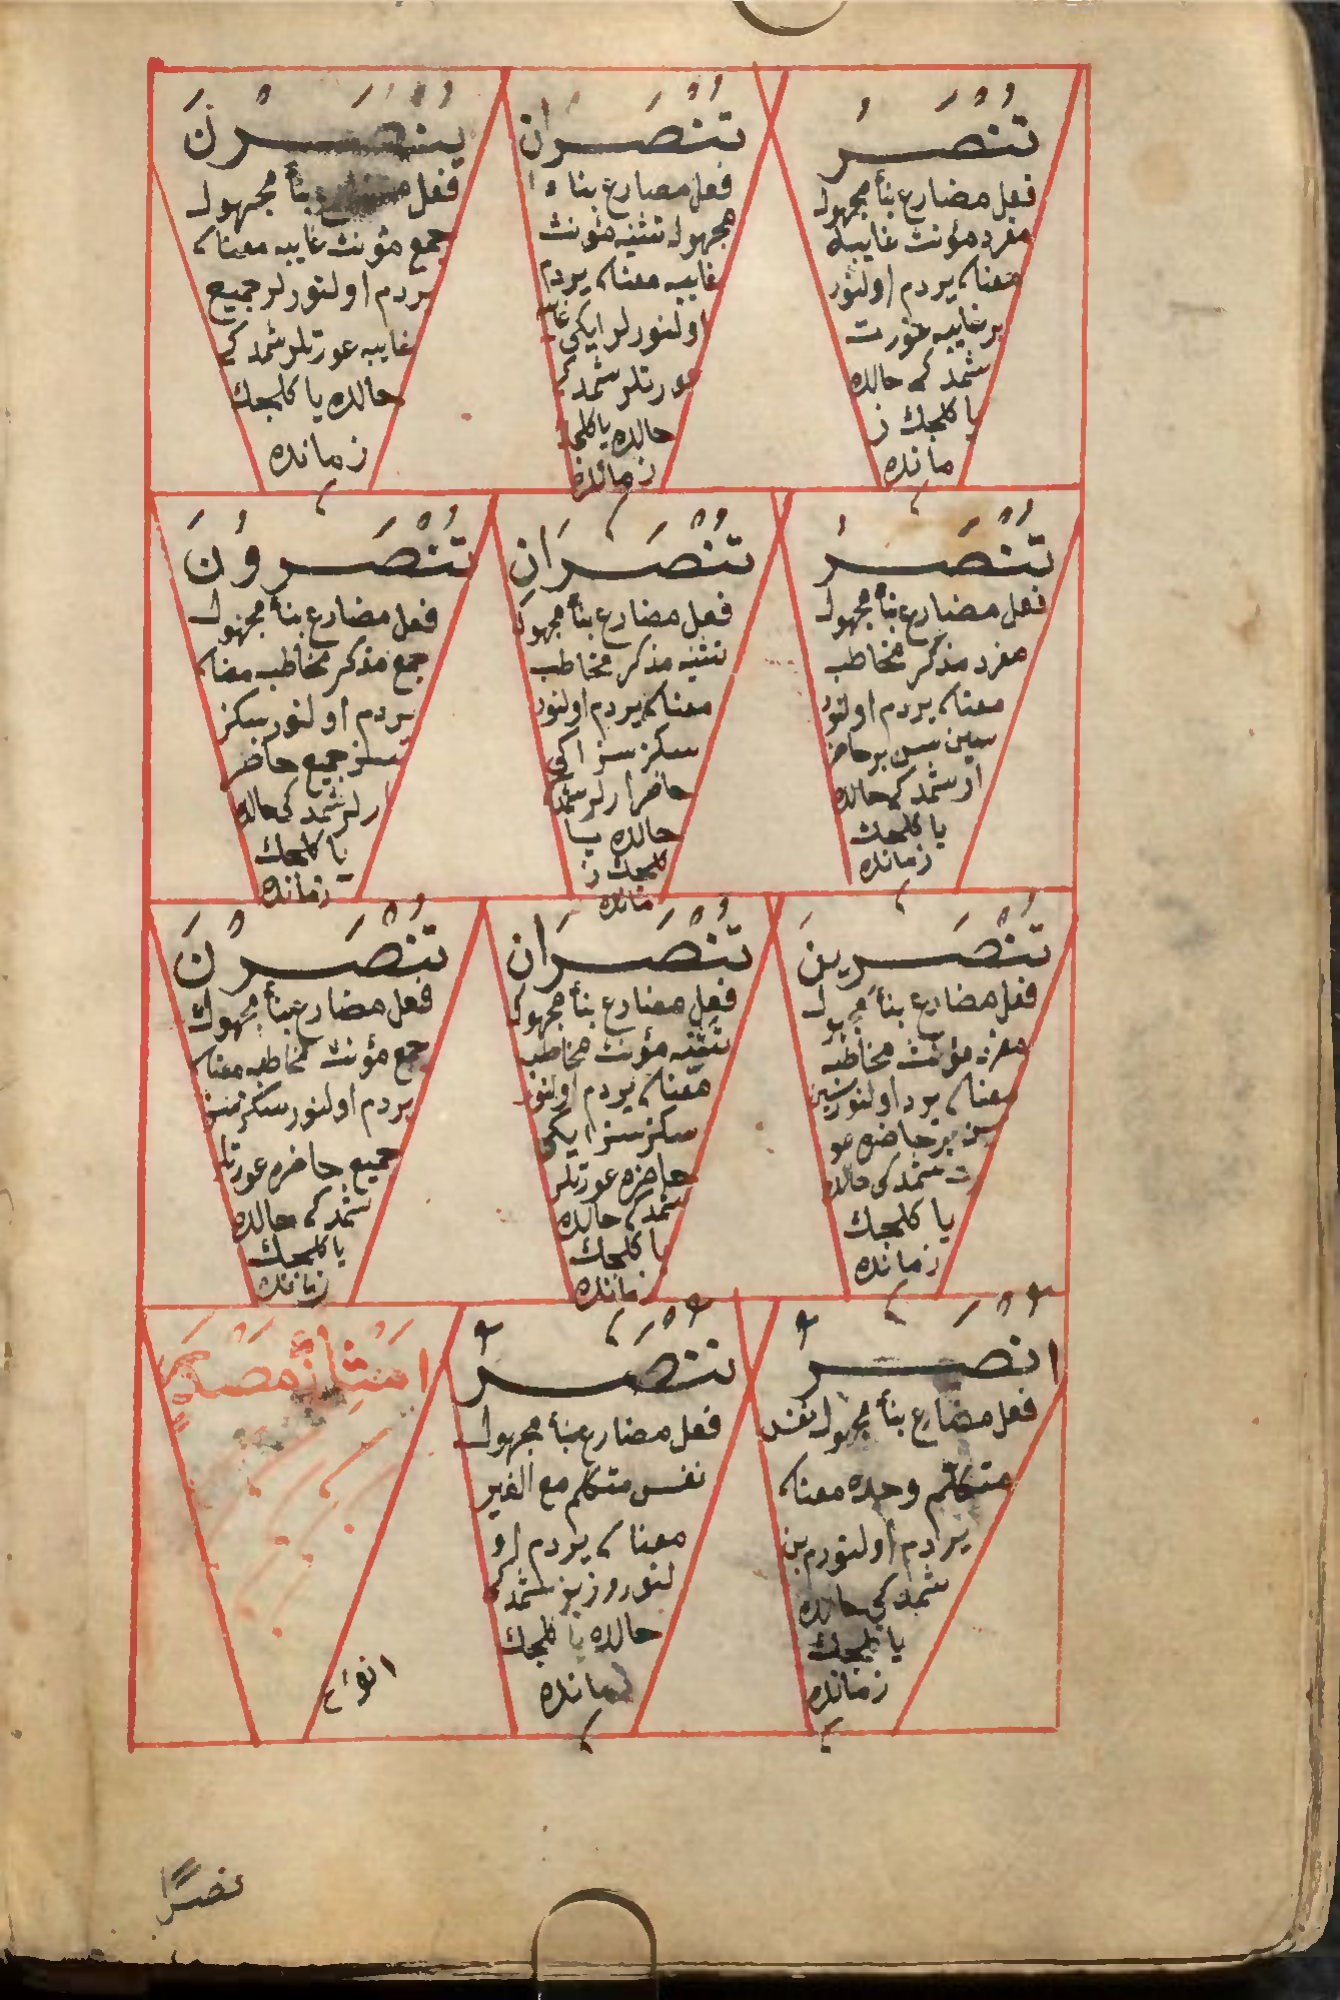 تُنْصَرُ
فعل مضارع بنأ مجهول
مفرد مؤنث غايبه
معناسى يردم اولنور
بر غايبه عورت
شمدكى حالده
يا كلجك ز
مانده
تُنْصَرَانِ
فعل مضارع بناء
مجهول تثنيه مؤنث
غايبه معناسى يردم
اولنورلر ايكى غايبه
عورتلر شمدكى
حالده يا كلجك
زمانده
يُنْصَرْنَ
فعل مضارع بنأ مجهول
جمع مؤنث غايبه معناسى
يردم اولنورلر جميع
غايبه عورتلر شمدكى
حالده يا كلجك
زمانده
تُنْصَرُ
فعل مضارع بنأ مجهول
مفرد مذكر مخاطب
معناسى يردم اولنور
سين سن بر حاضر
ار شمدكى حالده
يا كلجك
زمانده
تُنْصَرَانِ
فعل مضارع بنأ مجهول
تثنيه مذكر مخاطب
معناسى يردم اولنور
سكز سز اكى
حاضر ارلر شمدكى
حالده يا
كلجك ز
مانده
تُنْصَرُونَ
فعل مضارع بنأ مجهول
جمع مذكر مخاطب معناسى
يردم اولنور سكز
سز جميع حاضر
ارلر شمدكى حالده
يا كلجك
زمانده
تُنْصَرِينَ
فعل مضارع بنأ مجهول
مفرد مؤنث مخاطبه
معناسى يرد اولنور سين
سن بر حاضره عو
رت شمدكى حالده
يا كلجك
زمانده
تُنْصَرَانِ
فعل مضارع بنأ مجهول
تثنيه مؤنث مخاطبه
معناسى يردم اولنور
سكز سز ايكى
حاضره عورتلر
شمدكى حالده
يا كلجك
زمانده
تُنْصَرْنَ
فعل مضارع بنأ مجهول
جمع مؤنث مخاطبه معناسى
يردم اولنور سكز سز
جميع حاضره عورتلر
شمدكى حالده
يا كلجك
زمانده
اُنْصَرُ
فعل مضارع بنأ مجهول نفس
متكلم وحده معناسى
يردم اولنورم بن
شمدكى حالده
يا كلجك
زمانده
نُنْصَرُ
فعل مضارع بنأ مجهول
نفس متكلم مع الغير
معناسى يردم او
لنوروز بز شمدكى
حالده يا كلجك
زمانده
اَمْثِلَةُ مَصْدَر
انواع
نصرًا